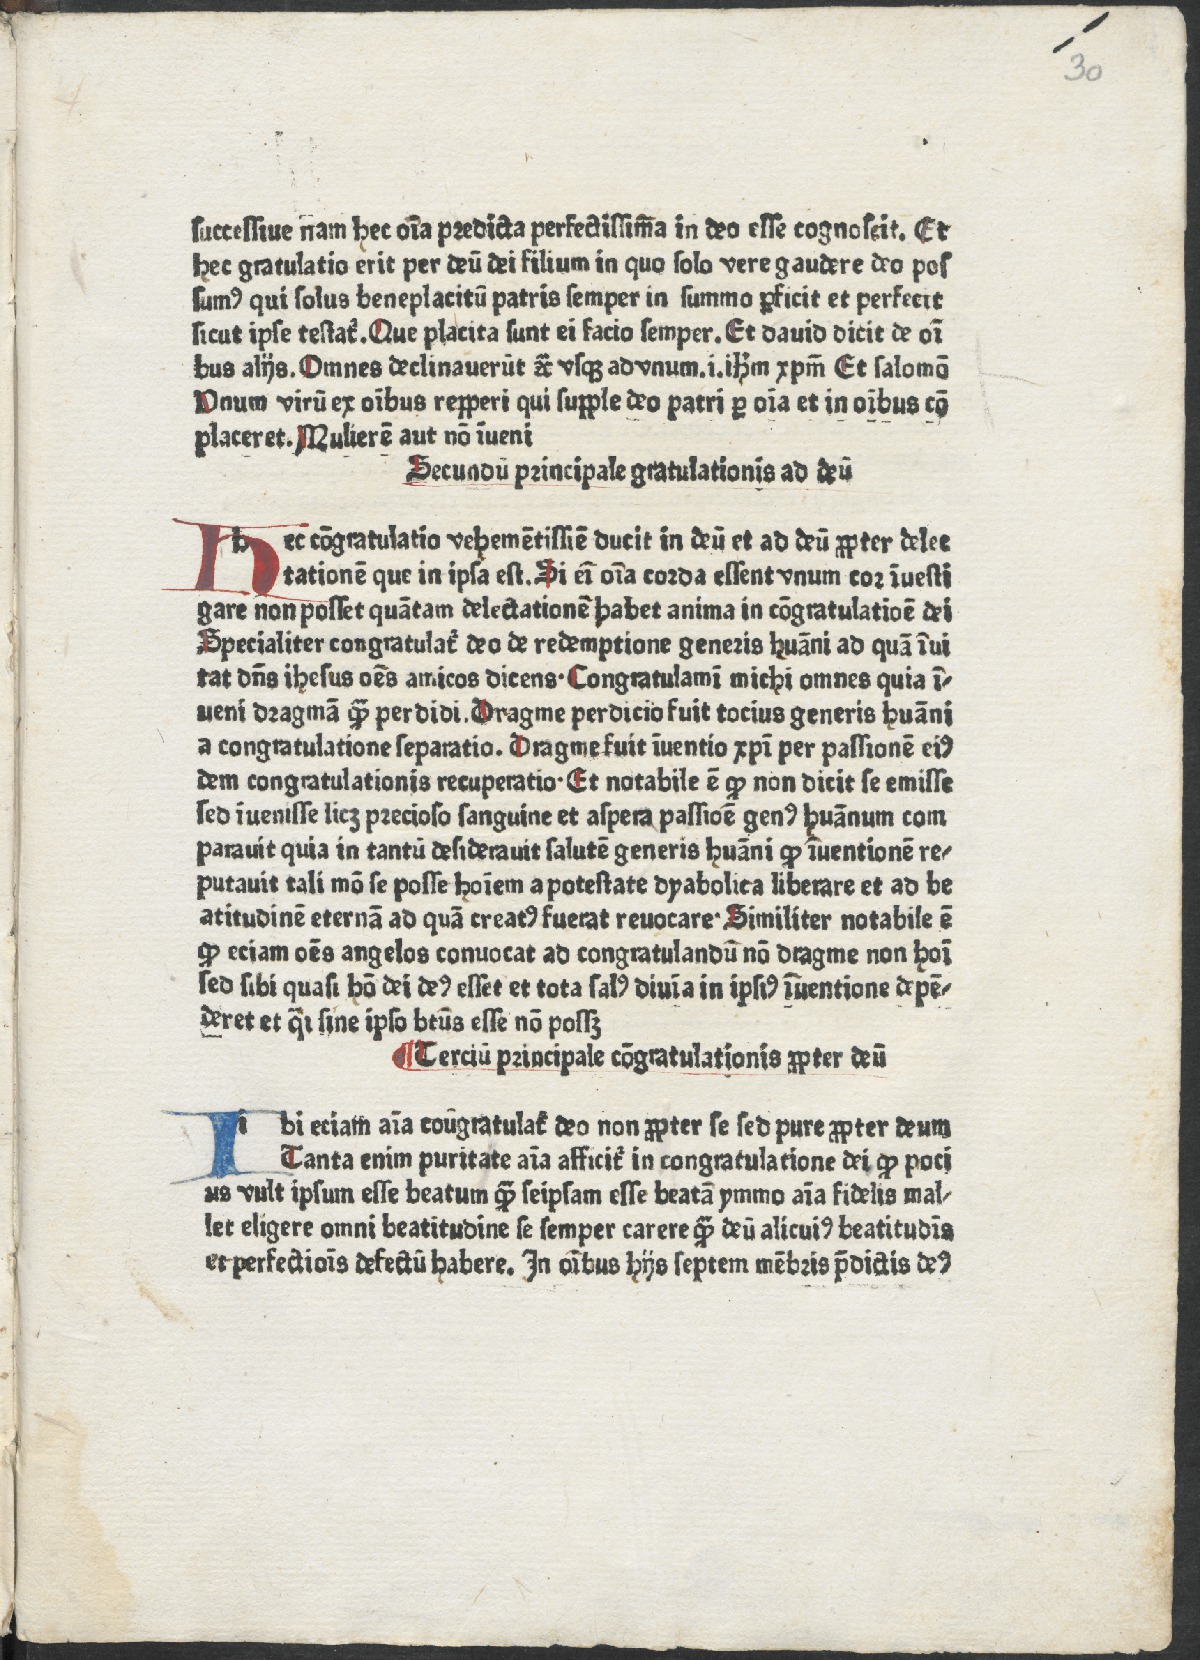 30
successiue nam hec oīa predicta perfectissim̄a in deo esse cognoscit. Et
hec gratulatio erit per deū dei filium in quo solo vere gaudere deo pos
sumꝰ qui solus beneplacitū patris semper in summo ꝑficit et perfecit
sicut ipse testat᷑. Que placita sunt ei facio semper. Et dauid dicit de oī
bus alijs. Omnes declinauerūt &̄ vsqꝫ ad vnum .i. ih̄m xpm̄ Et salomō
Vnum virū ex oībus repperi qui supple deo patri ꝑ oīa et in oībus cō
placeret. Mulierē aut nō īueni
Secundū principale gratulationis ad deū
Hec cōgratulatio vehemētissiē ducit in deū et ad deū ꝓpter delec
tationē que in ipsa est. Si eī oīa corda essent vnum cor īuesti
gare non posset quātam delectationē habet anima in cōgratulatioē dei
Specialiter congratulat᷑ deo de redemptione generis huāni ad quā īui
tat dn̄s ihesus oēs amicos dicens· Congratulamī michi omnes quia ī-
ueni dragmā qꝫ̄ perdidi. Dragme perdicio fuit tocius generis huāni
a congratulatione separatio. Dragme fuit īuentio xpī per passionē eiꝰ
dem congratulationis recuperatio· Et notabile ē ꝙ non dicit se emisse
sed īuenisse licꝫ precioso sanguine et aspera passioē genꝰ huānum com
parauit quia in tantū desiderauit salutē generis huāni ꝙ īuentionē re-
putauit tali mō se posse hoīem a potestate dyabolica liberare et ad be
atitudinē eternā ad quā creatꝰ fuerat reuocare· Similiter notabile ē
ꝙ eciam oēs angelos conuocat ad congratulandū nō dragme non hoī
sed sibi quasi hō dei deꝰ esset et tota salꝰ diuīa in ipsiꝰ īuentione depē-
deret et q̄i sine ipso btūs esse nō possꝫ
¶ Terciū principale cōgratulationis ꝓpter deū
Ibi eciam aīa coūgratulat᷑ deo non ꝓpter se sed pure ꝓpter deum
Tanta enim puritate aīa afficit᷑ in congratulatione dei ꝙ poci
us vult ipsum esse beatum ꝙ̄ seipsam esse beatā ymmo aīa fidelis mal-
let eligere omni beatitudine se semper carere ꝙ̄ deū alicuiꝰ beatitudīs
et perfectioīs defectū habere. In oībus hijs septem mēbris p̄dictis deꝰ